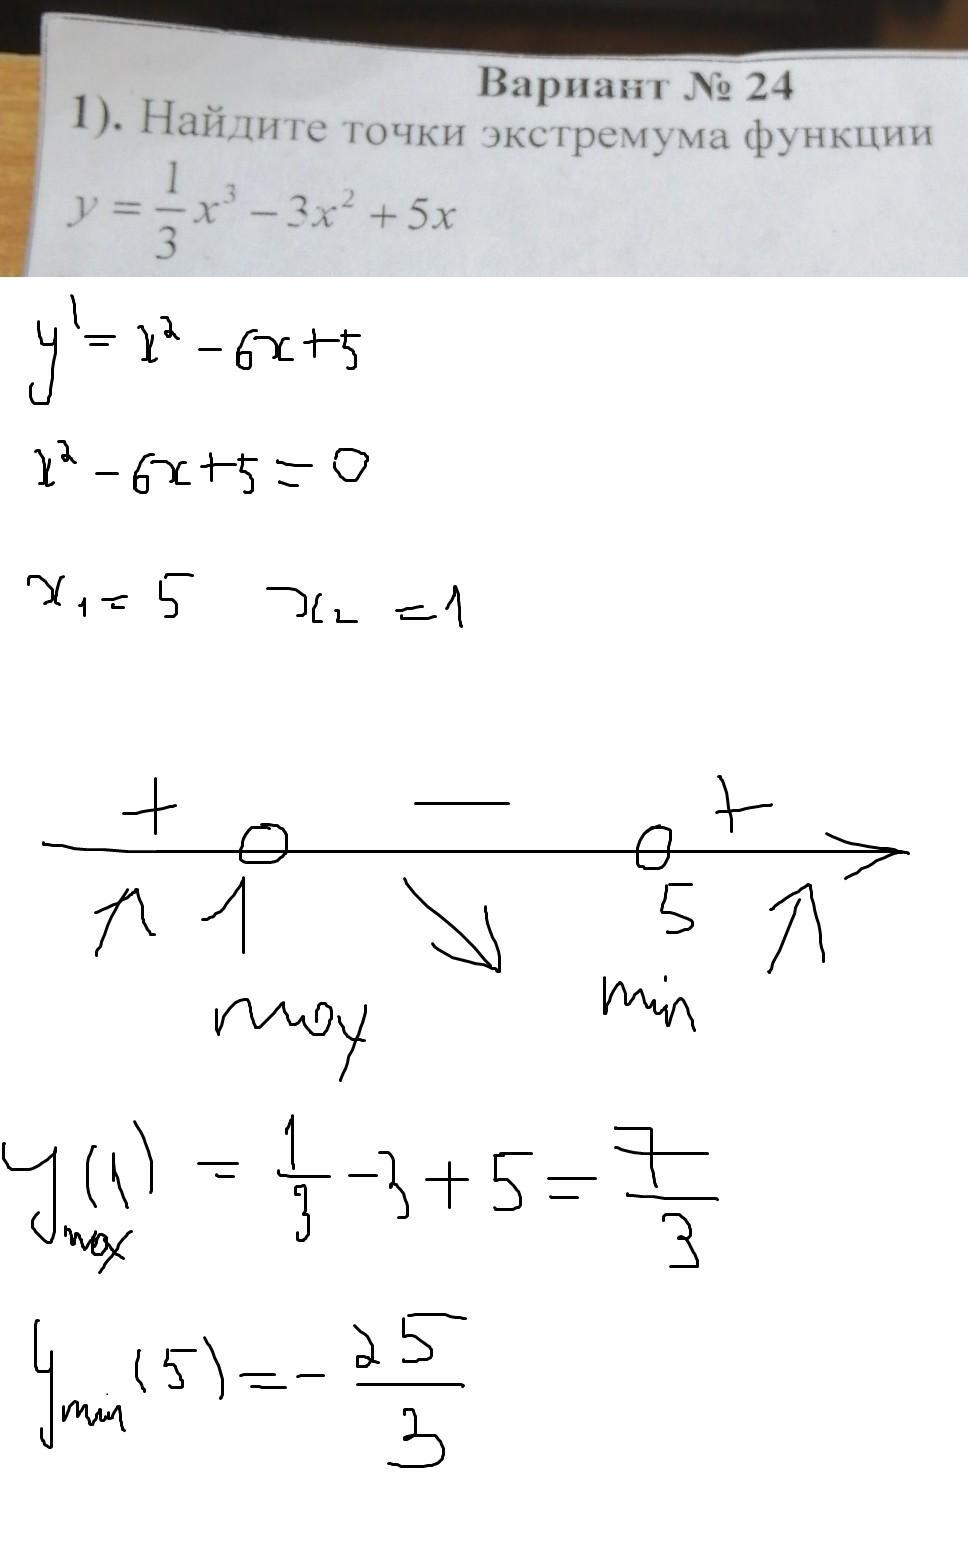 Вариант № 24
1). Найдите точки экстремума функции
y = 1/3 x³ − 3x² + 5x
y' = x² − 6x + 5
x² − 6x + 5 = 0
x₁ = 5 x₂ = 1
+ − +
1 5
max min
y max (1) = 1/3 − 3 + 5 = 7/3
y min (5) = − 25/3